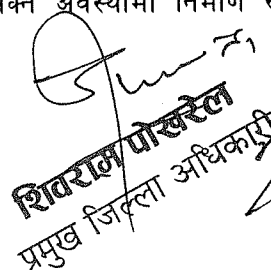 अवस्थामा निर्माण
शिवराज पोखरेल
प्रमुख जिल्ला अधिकारी